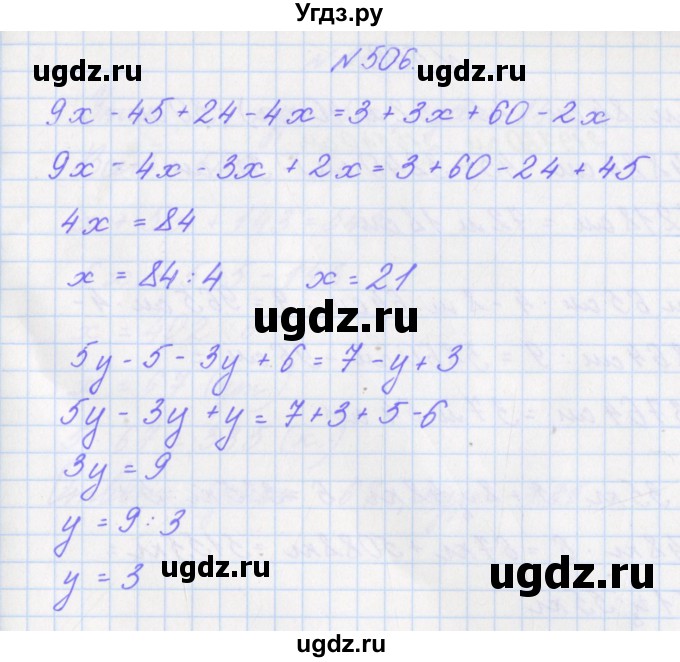 Угдз.ру
№506.
ugdz.ru
ugdz.ru
9x - 45 + 24 - 4x = 3 + 3x + 60 - 2x
9x - 4x - 3x + 2x = 3 + 60 - 24 + 45
4x = 84
x = 84 : 4 x = 21
ugdz.ru
5y - 5 - 3y + 6 = 7 - y + 3
5y - 3y + y = 7 + 3 + 5 - 6
3y = 9
y = 9 : 3
y = 3
ugdz.ru
ugdz.ru
ugdz.ru